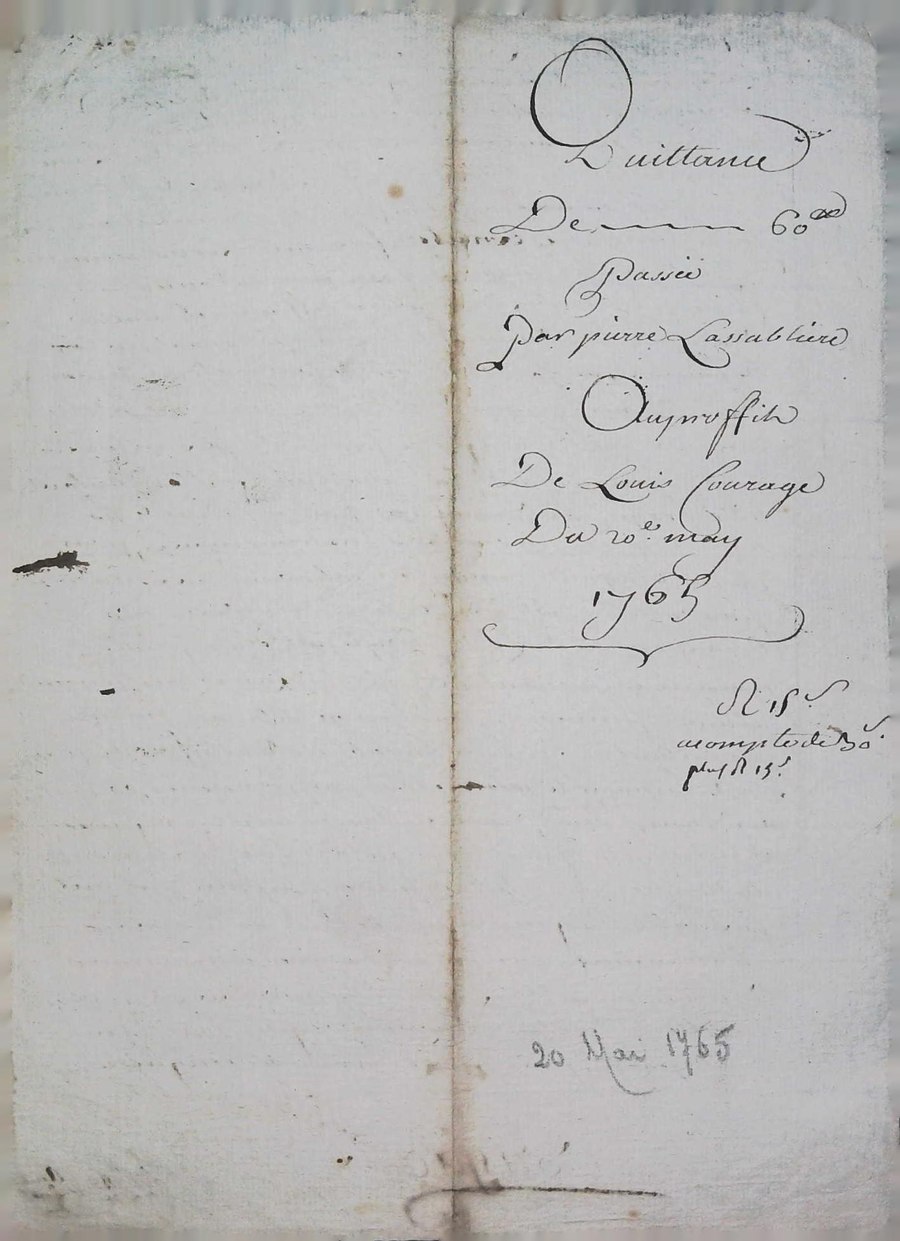 Quittance
De 60ᵗᵗ
Passeé
Par pierre Lassabliere
Auproffith
De Louis Courage
Du 20ᵉ. may
1765
R 15ˢ
acompte de 30ˢ.
plus R 15ˢ
20 Mai 1765